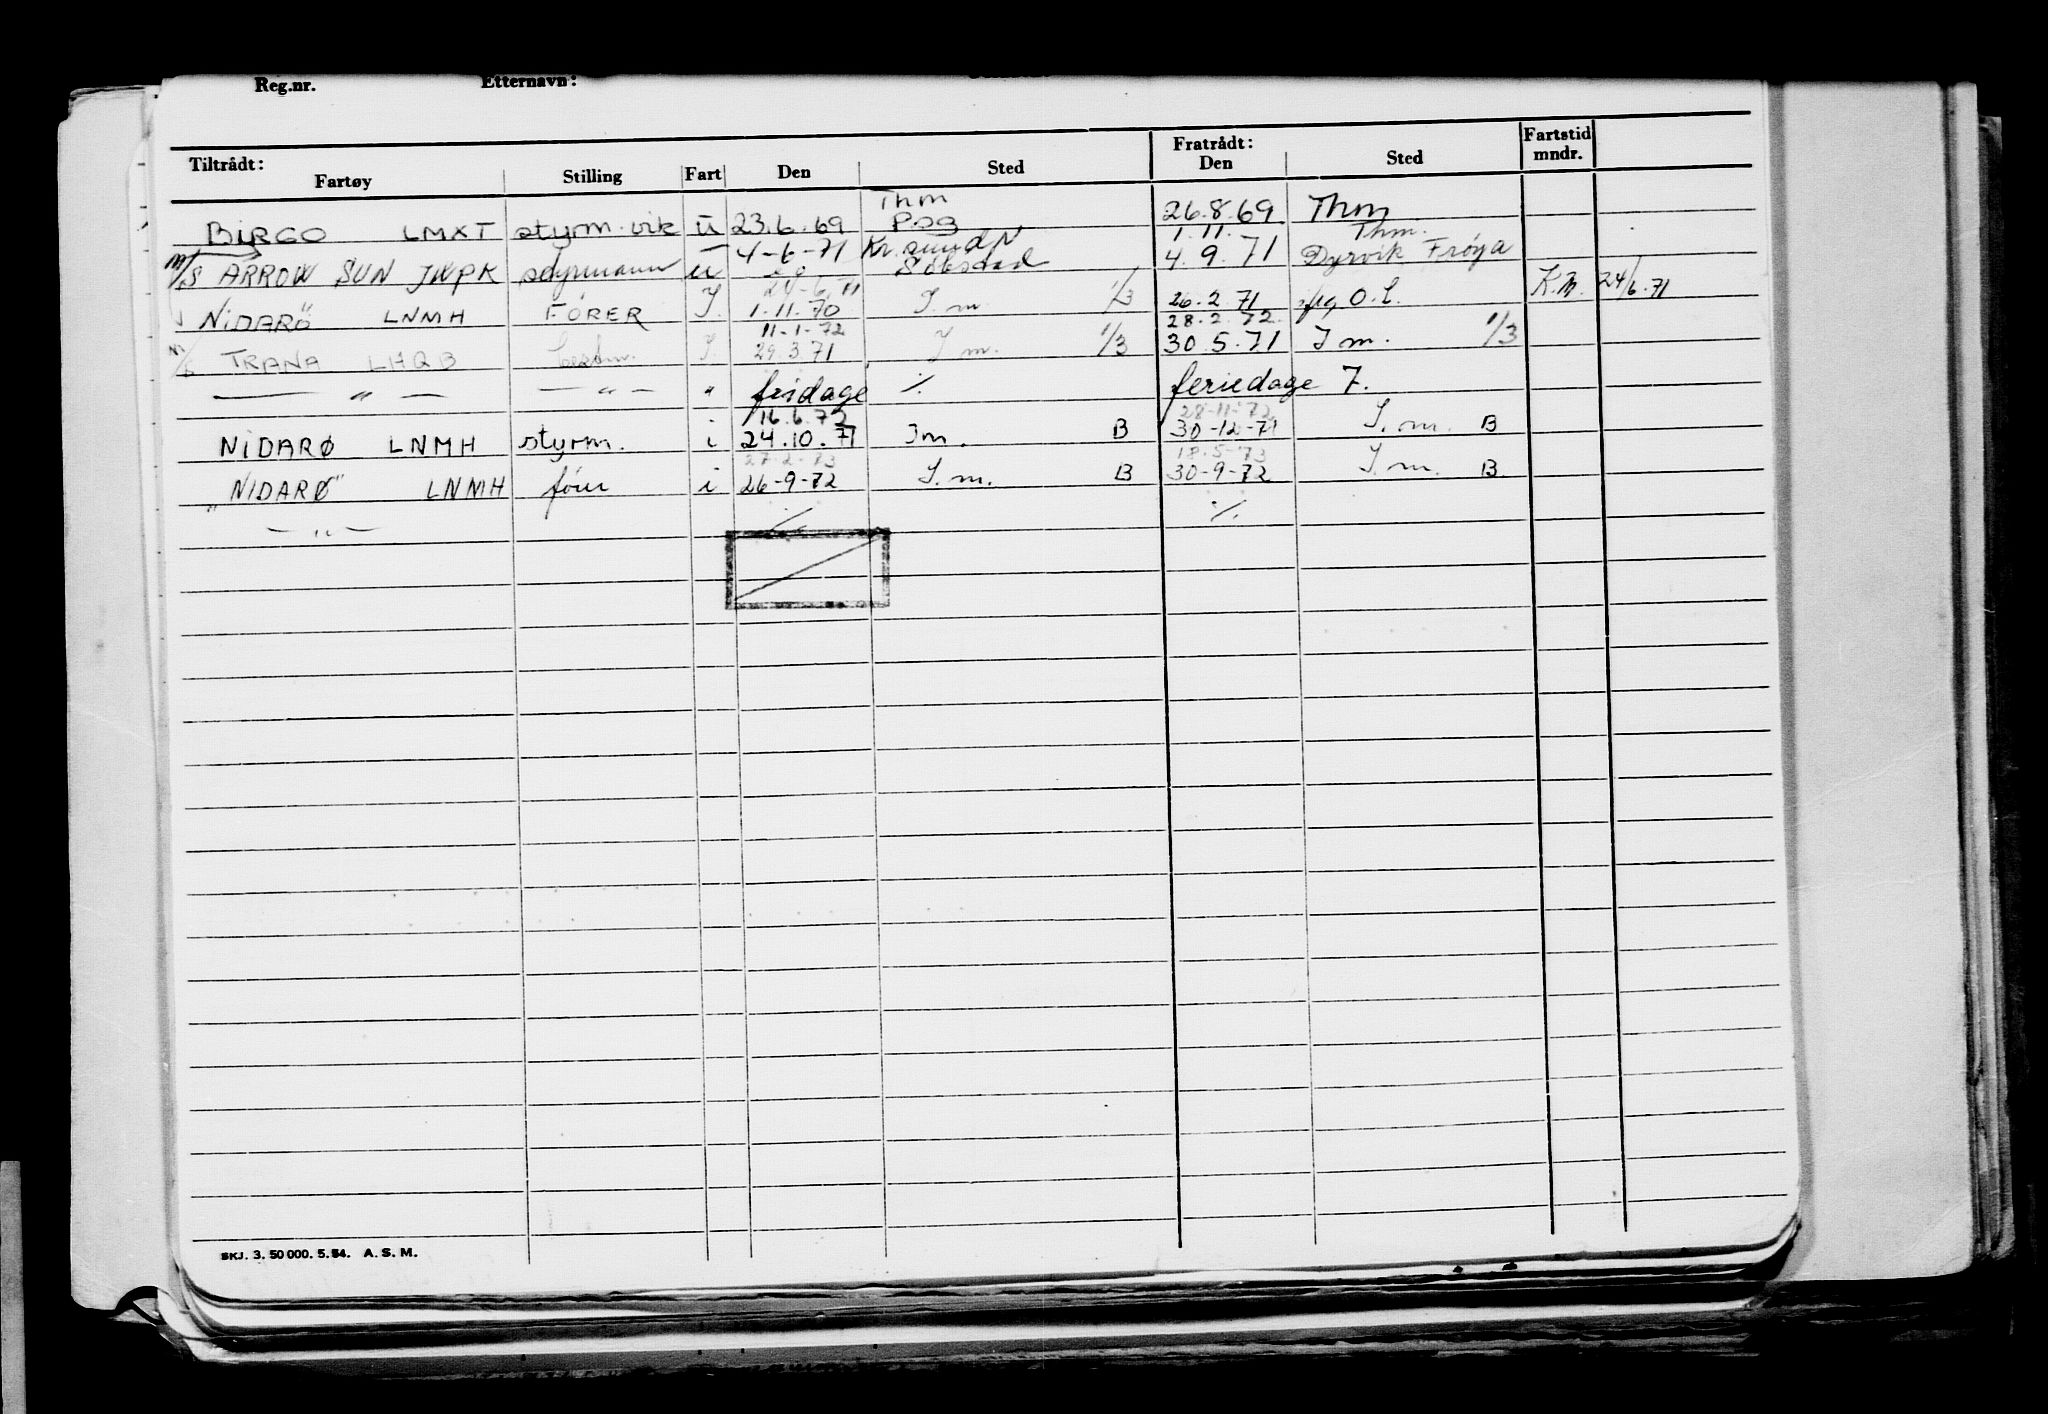 Reg.nr. Etternavn:
Tiltrådt: Fratrådt: Fartstid
Fartøy Stilling Fart Den Sted Den Sted mndr.
Thm
BIRGO LMXT styrm. vik u 23.6.69 Pog 26.8.69 Thm
4-6-71 Kr.sund N 1.11. Thm.
M/S ARROW SUN JXPK styrmann u 4.9.71 Dyrvik Frøya
24-6-71
NIDARØ LNMH FÖRER I. 1.11.70 I.m. 1/3 26.2.71 O.l. K.M. 24/6.71
11-1-72 28.2.72
TRANA LHQB I. 29.3.71 I m. 1/3 30.5.71 I m. 1/3
— " — — " — " fridage % feriedage 7.
16.6.72 28-11-72
NIDARØ LNMH styrm. i 24.10.71 Im. B 30-12-71 I.m. B
27-2-73 18.5-73
"NIDARØ" LNMH fører i 26-9-72 I.m. B 30-9-72 I.m. B
— " — % %
SKJ. 3. 50 000. 5. 54. A. S. M.